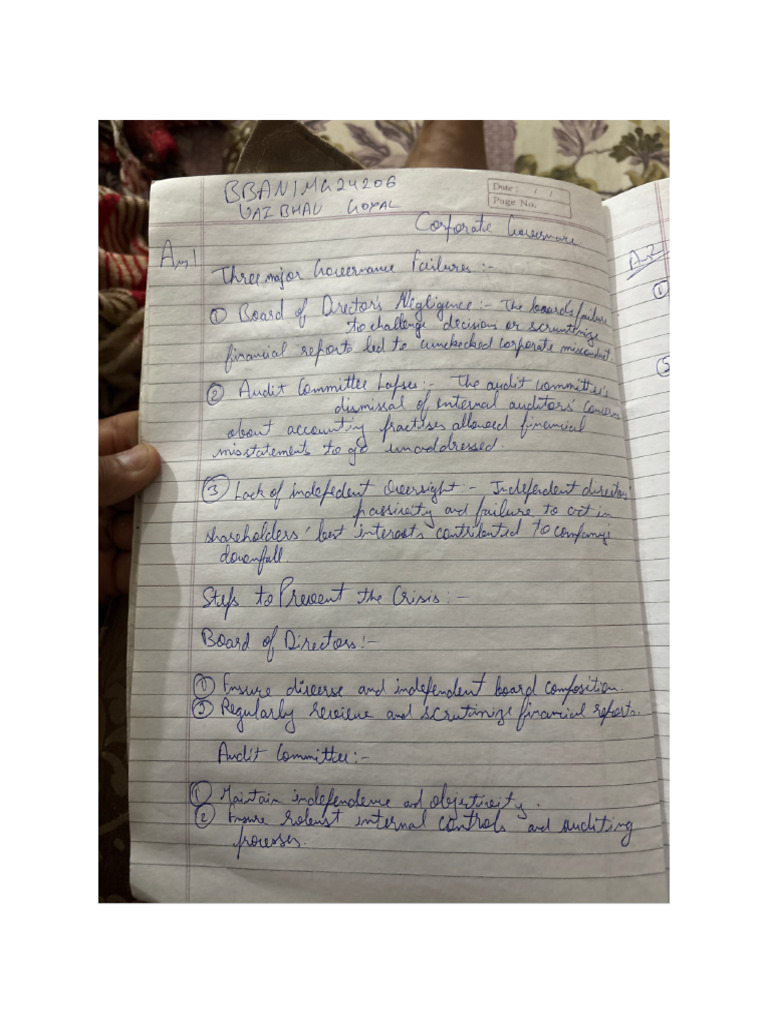 BBAN1MG24206
VAIBHAV GOYAL
Date: / /
Page No.
Corporate Governance
Ans1
A2
Three major Governance Failures :-
① Board of Director's Negligence :- The board's failure
①
to challenge decisions or scruttinize
financial reports led to unchecked corporate misconduct.
② Audit Committee Lapses :- The audit committee's
dismissal of internal auditors' concerns
about accounting practises allowed financial
misstatements to go unaddressed.
③ Lack of indepedent Oversight :- Independent directors'
passivity and failure to act in
shareholders' best interests contributed to company's
downfall.
Steps to Prevent the Crisis :-
Board of Directors :-
① Ensure diverse and independent board composition.
② Regularly review and scrutinize financial reports.
Audit Committee :-
① Maintain independence and objectivity.
② Ensure robust internal controls and auditing
processes.